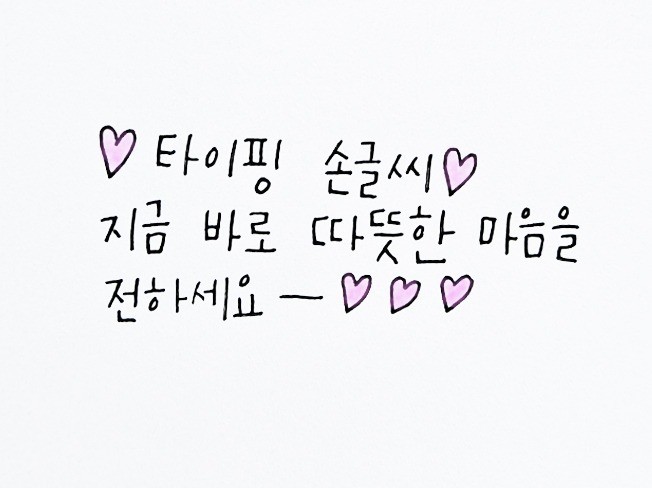 ♡ 타이핑 손글씨♡
지금 바로 따뜻한 마음을
전하세요 — ♡ ♡ ♡